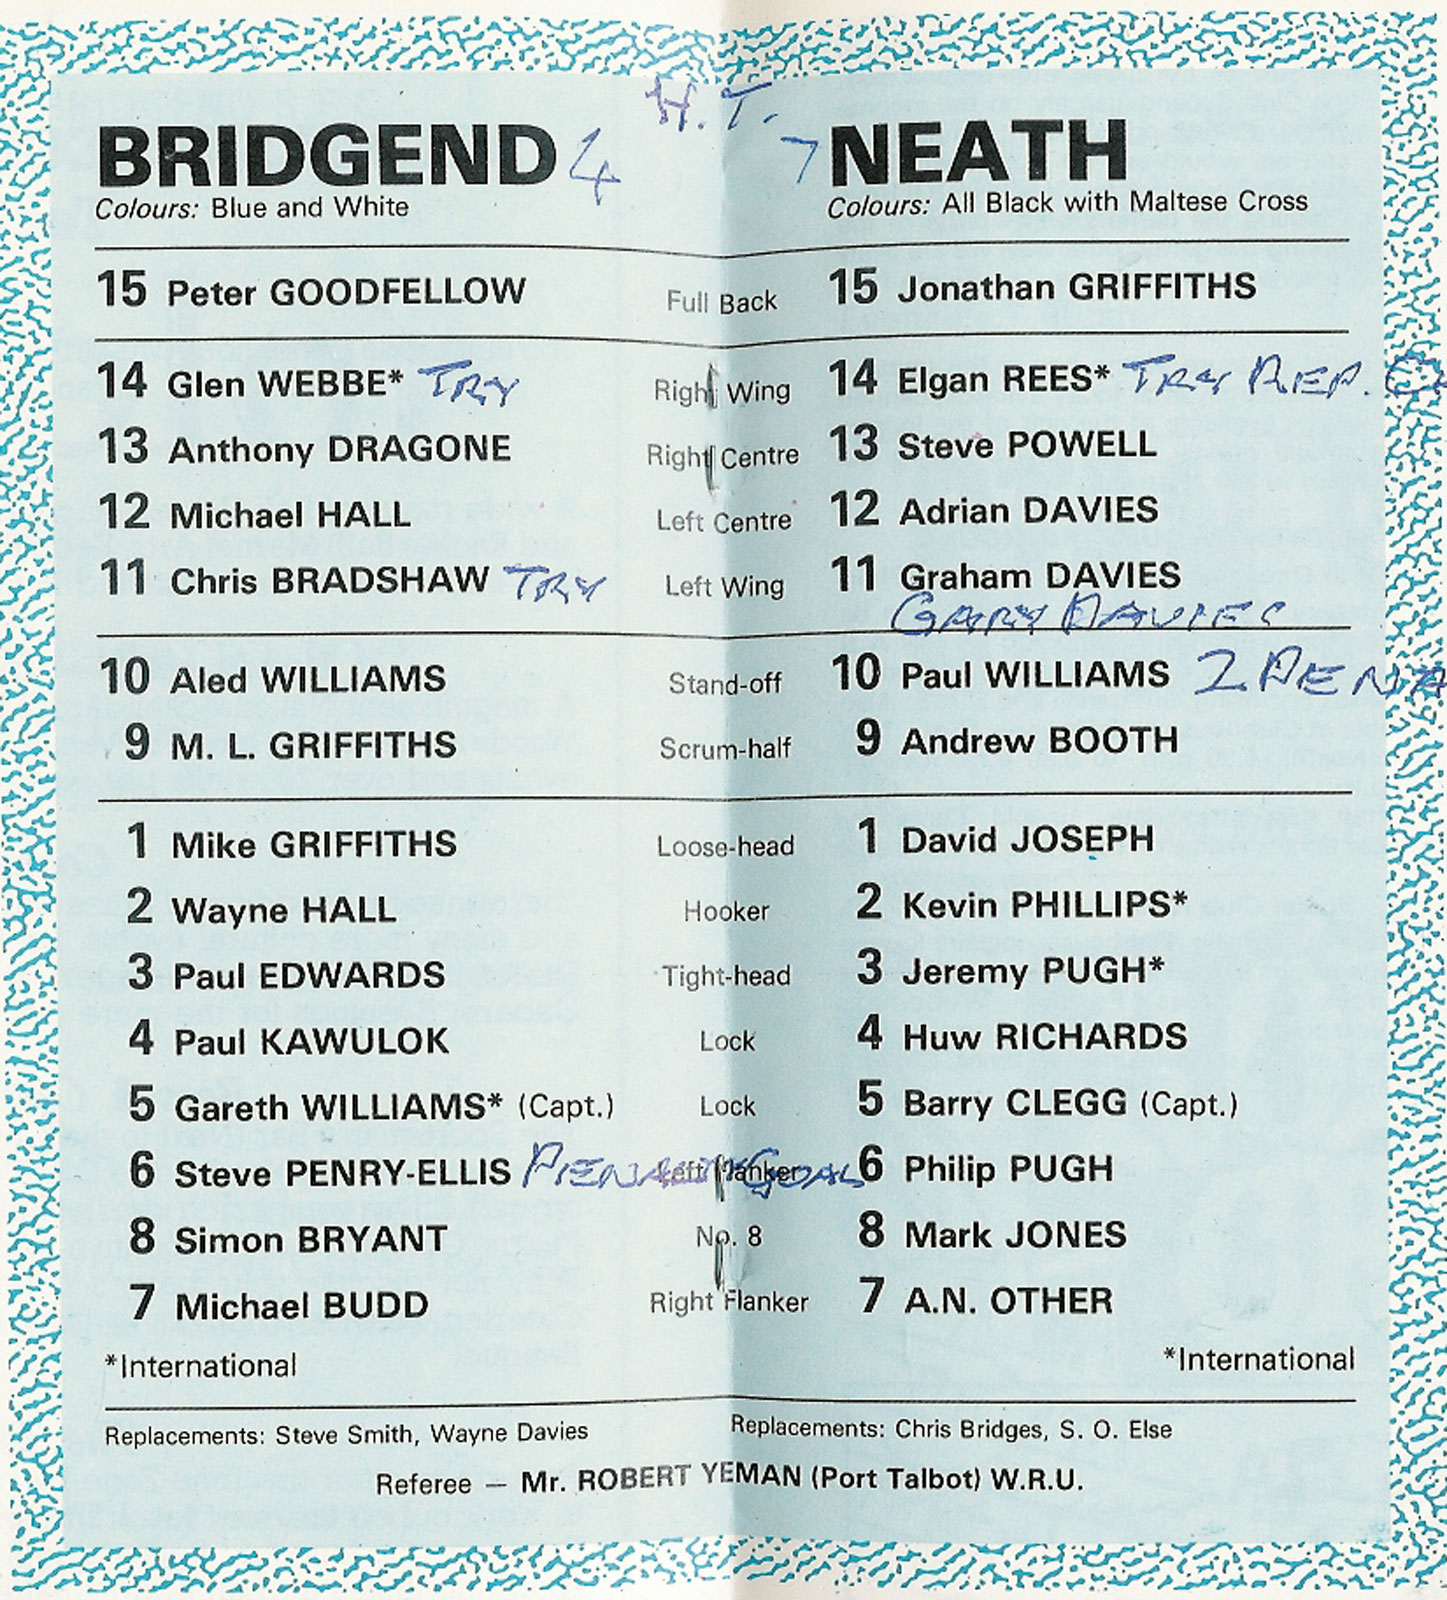 H.T.
BRIDGEND 4 7 NEATH
Colours: Blue and White Colours: All Black with Maltese Cross
15 Peter GOODFELLOW Full Back 15 Jonathan GRIFFITHS
14 Glen WEBBE* TRY Right Wing 14 Elgan REES* TRY REP.
13 Anthony DRAGONE Right Centre 13 Steve POWELL
12 Michael HALL Left Centre 12 Adrian DAVIES
11 Chris BRADSHAW TRY Left Wing 11 Graham DAVIES
GARY DAVIES
10 Aled WILLIAMS Stand-off 10 Paul WILLIAMS 2 PENA
9 M. L. GRIFFITHS Scrum-half 9 Andrew BOOTH
1 Mike GRIFFITHS Loose-head 1 David JOSEPH
2 Wayne HALL Hooker 2 Kevin PHILLIPS*
3 Paul EDWARDS Tight-head 3 Jeremy PUGH*
4 Paul KAWULOK Lock 4 Huw RICHARDS
5 Gareth WILLIAMS* (Capt.) Lock 5 Barry CLEGG (Capt.)
6 Steve PENRY-ELLIS PENALTY GOAL Left Flanker 6 Philip PUGH
8 Simon BRYANT No. 8 8 Mark JONES
7 Michael BUDD Right Flanker 7 A.N. OTHER
*International *International
Replacements: Steve Smith, Wayne Davies Replacements: Chris Bridges, S. O. Else
Referee — Mr. ROBERT YEMAN (Port Talbot) W.R.U.